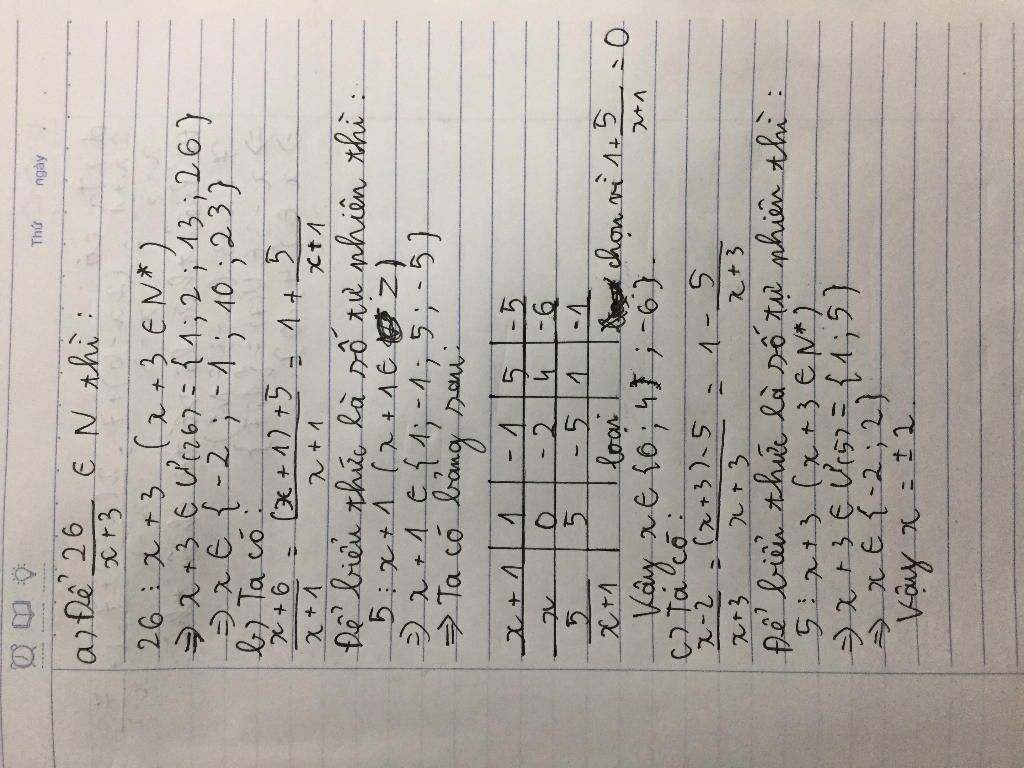 Thứ ngày
a) Để 26/(x+3) ∈ N thì:
26 ⋮ x+3 (x+3 ∈ N*)
⇒ x+3 ∈ Ư(26) = {1; 2; 13; 26}
⇒ x ∈ {-2; -1; 10; 23}
b) Ta có:
(x+6)/(x+1) = ((x+1)+5)/(x+1) = 1 + 5/(x+1)
Để biểu thức là số tự nhiên thì:
5 ⋮ x+1 (x+1 ∈ Z)
⇒ x+1 ∈ {1; -1; 5; -5}
⇒ Ta có bảng sau:
x+1 | 1 | -1 | 5 | -5
x | 0 | -2 | 4 | -6
5/(x+1) | 5 | -5 | 1 | -1
loại chọn vì 1 + 5/(x+1) = 0
Vậy x ∈ {0; 4; -6}.
c) Ta có:
(x-2)/(x+3) = ((x+3)-5)/(x+3) = 1 - 5/(x+3)
Để biểu thức là số tự nhiên thì:
5 ⋮ x+3 (x+3 ∈ N*)
⇒ x+3 ∈ Ư(5) = {1; 5}
⇒ x ∈ {-2; 2}
Vậy x = ±2